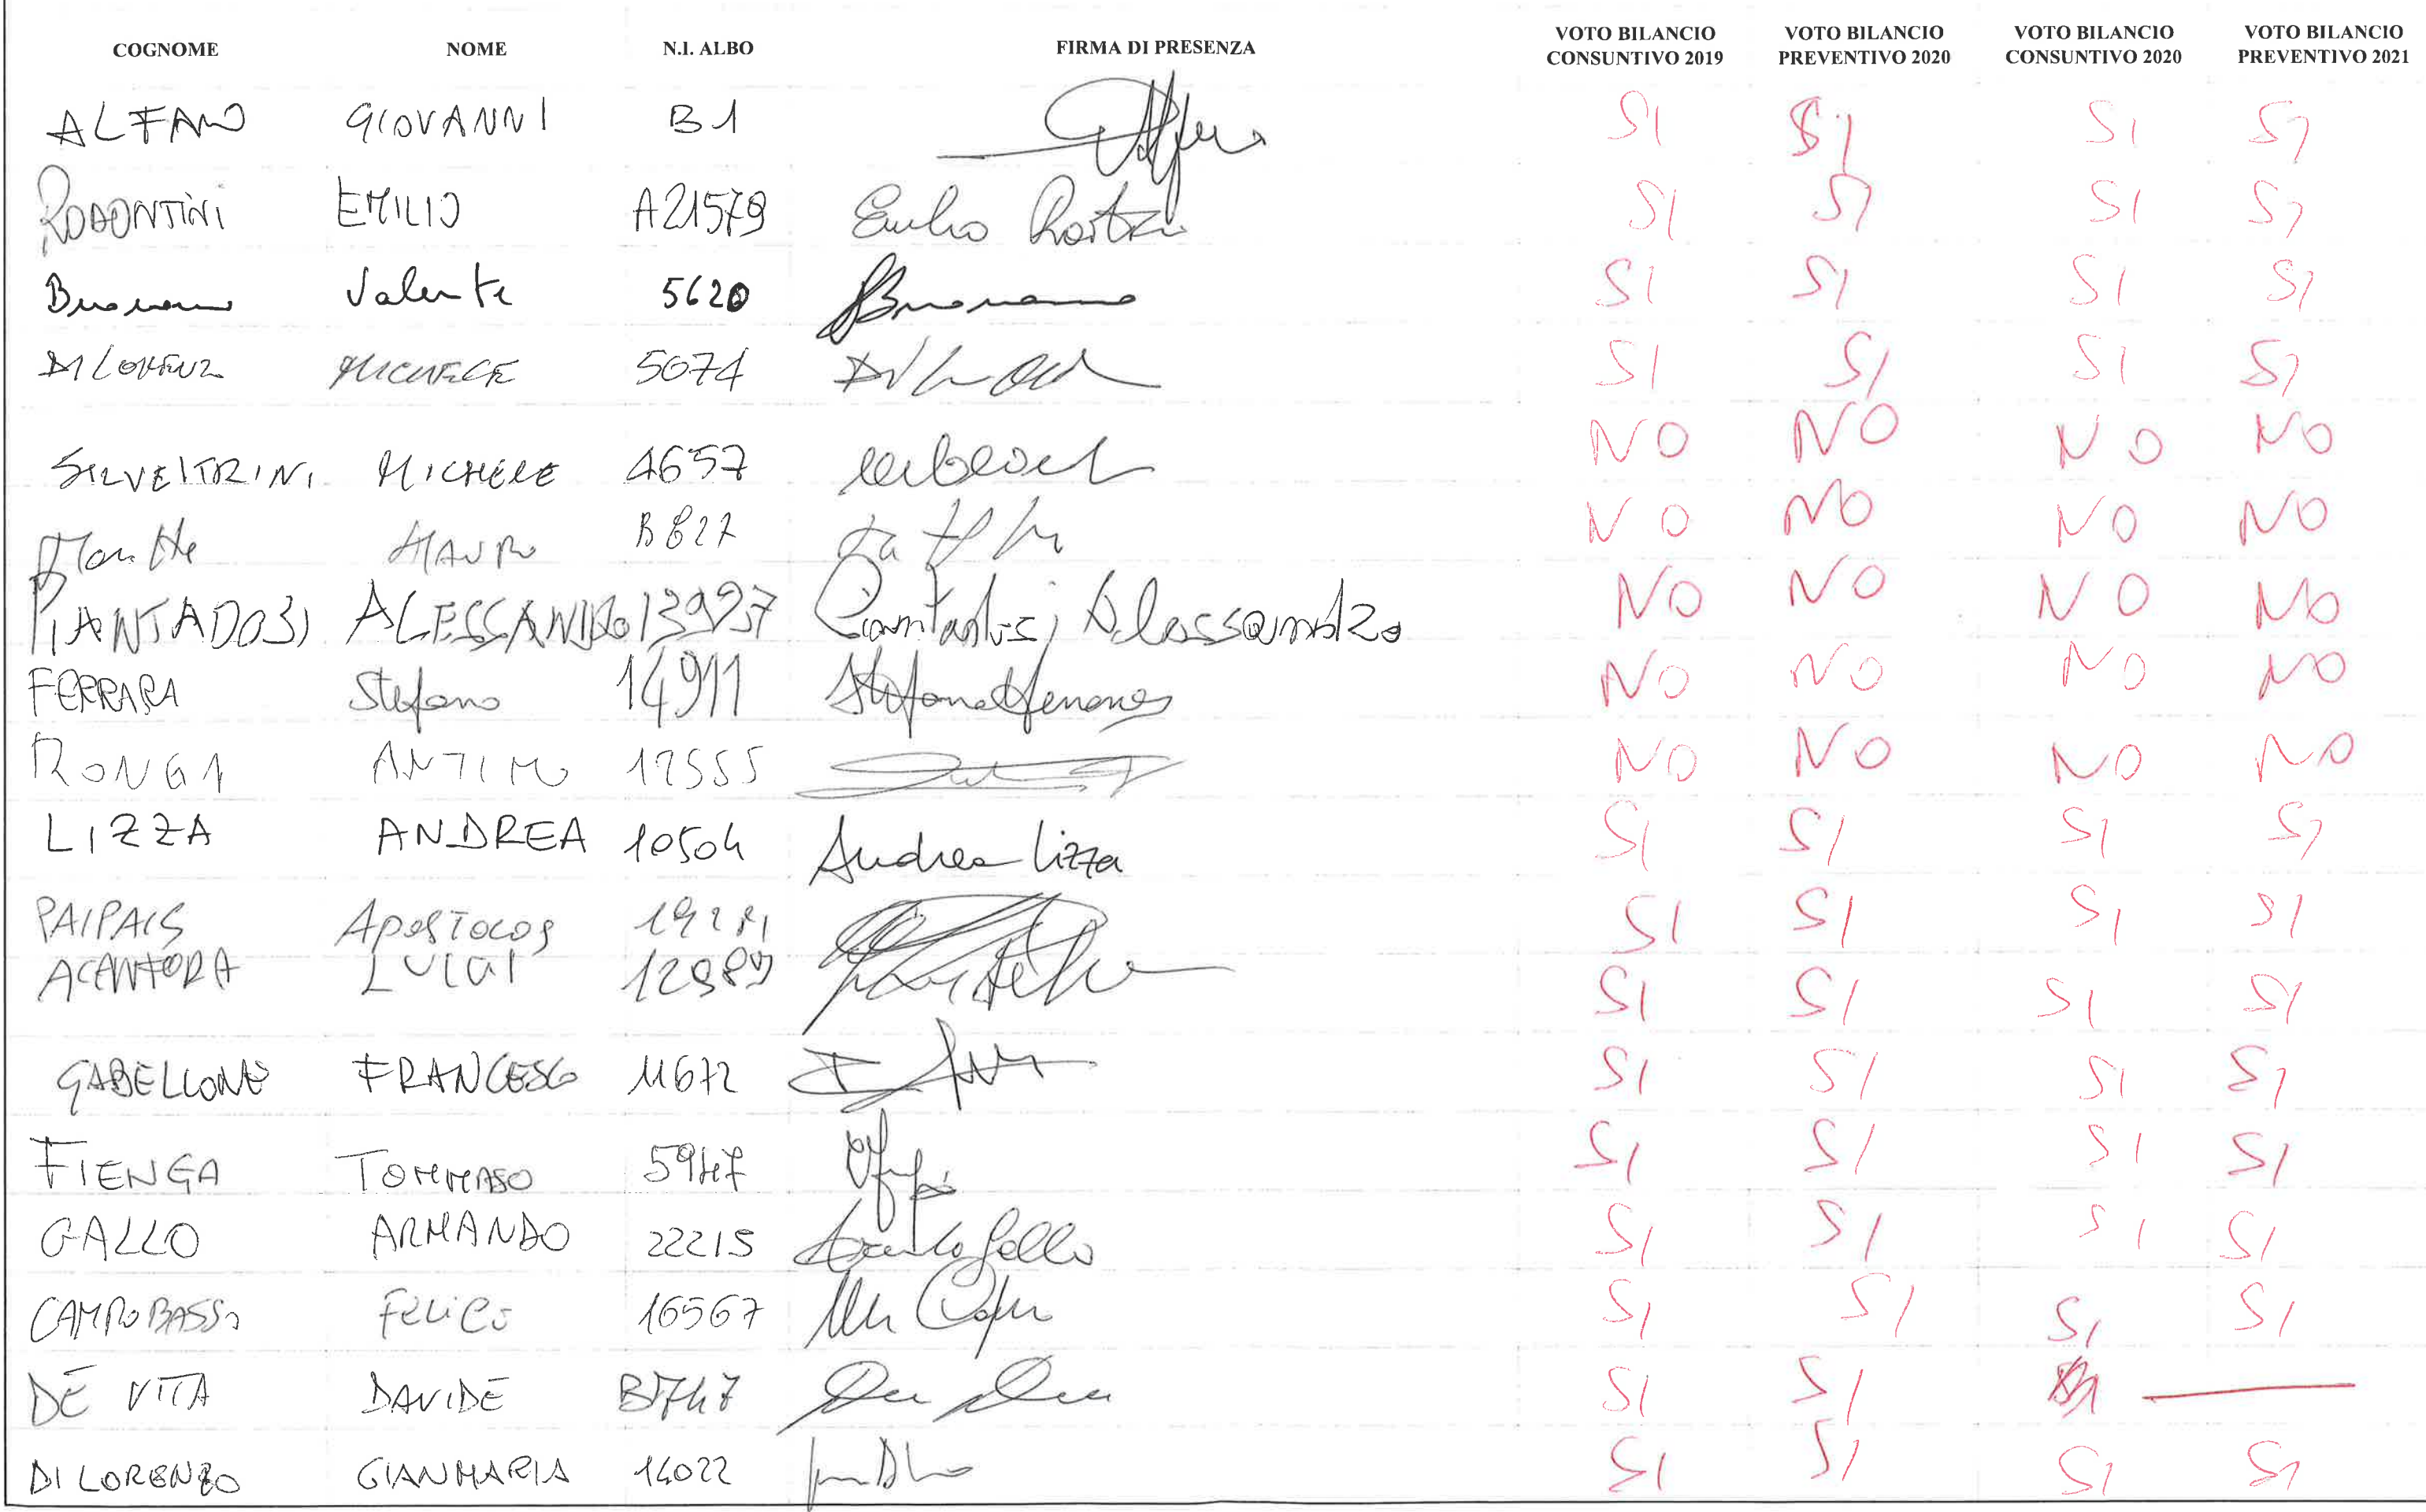 COGNOME NOME N.I. ALBO FIRMA DI PRESENZA VOTO BILANCIO CONSUNTIVO 2019 VOTO BILANCIO PREVENTIVO 2020 VOTO BILANCIO CONSUNTIVO 2020 VOTO BILANCIO PREVENTIVO 2021
ALFANO GIOVANNI B1 SI SI SI SI
RODONTINI EMILIO A21579 Emilio SI SI SI SI
Buonomo Valente 5620 Buonomo SI SI SI SI
DI LORENZ MICHELE 5074 SI SI SI SI
SILVESTRINI MICHELE 4657 NO NO NO NO
MAURO B827 NO NO NO NO
PIANTADOSI ALESSANDRO 13927 Piantadosi Alessandro NO NO NO NO
FERRARA Stefano 14911 Stefano Ferrara NO NO NO NO
RONGA ANTIMO 17555 NO NO NO NO
LIZZA ANDREA 10504 Andrea Lizza SI SI SI SI
PAIPAIS APOSTOLOS SI SI SI SI
ACANFORA LUIGI 12989 SI SI SI SI
GABELLONE FRANCESCO 11672 SI SI SI SI
FIENGA TOMMASO 5947 SI SI SI SI
GALLO ARMANDO 22215 Armando Gallo SI SI SI SI
CAMPOBASSO FELICE 16567 SI SI SI SI
DE VITA DAVIDE B1747 SI SI
DI LORENZO GIANMARIA 14022 SI SI SI SI